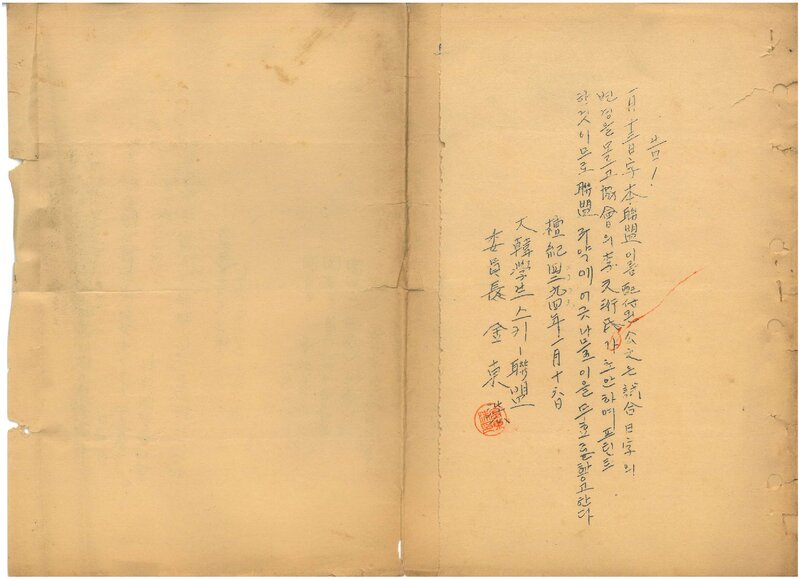 一月十三日字本聯盟이름配付된公文은試合日字의
변경을모르고協會의李天珩氏가초안하여프린트
한것이므로聯盟규약에어긋나므로이을무효로함공고한다
檀紀四二九四年一月十六日
大韓學生스키ー聯盟
委員長 金東